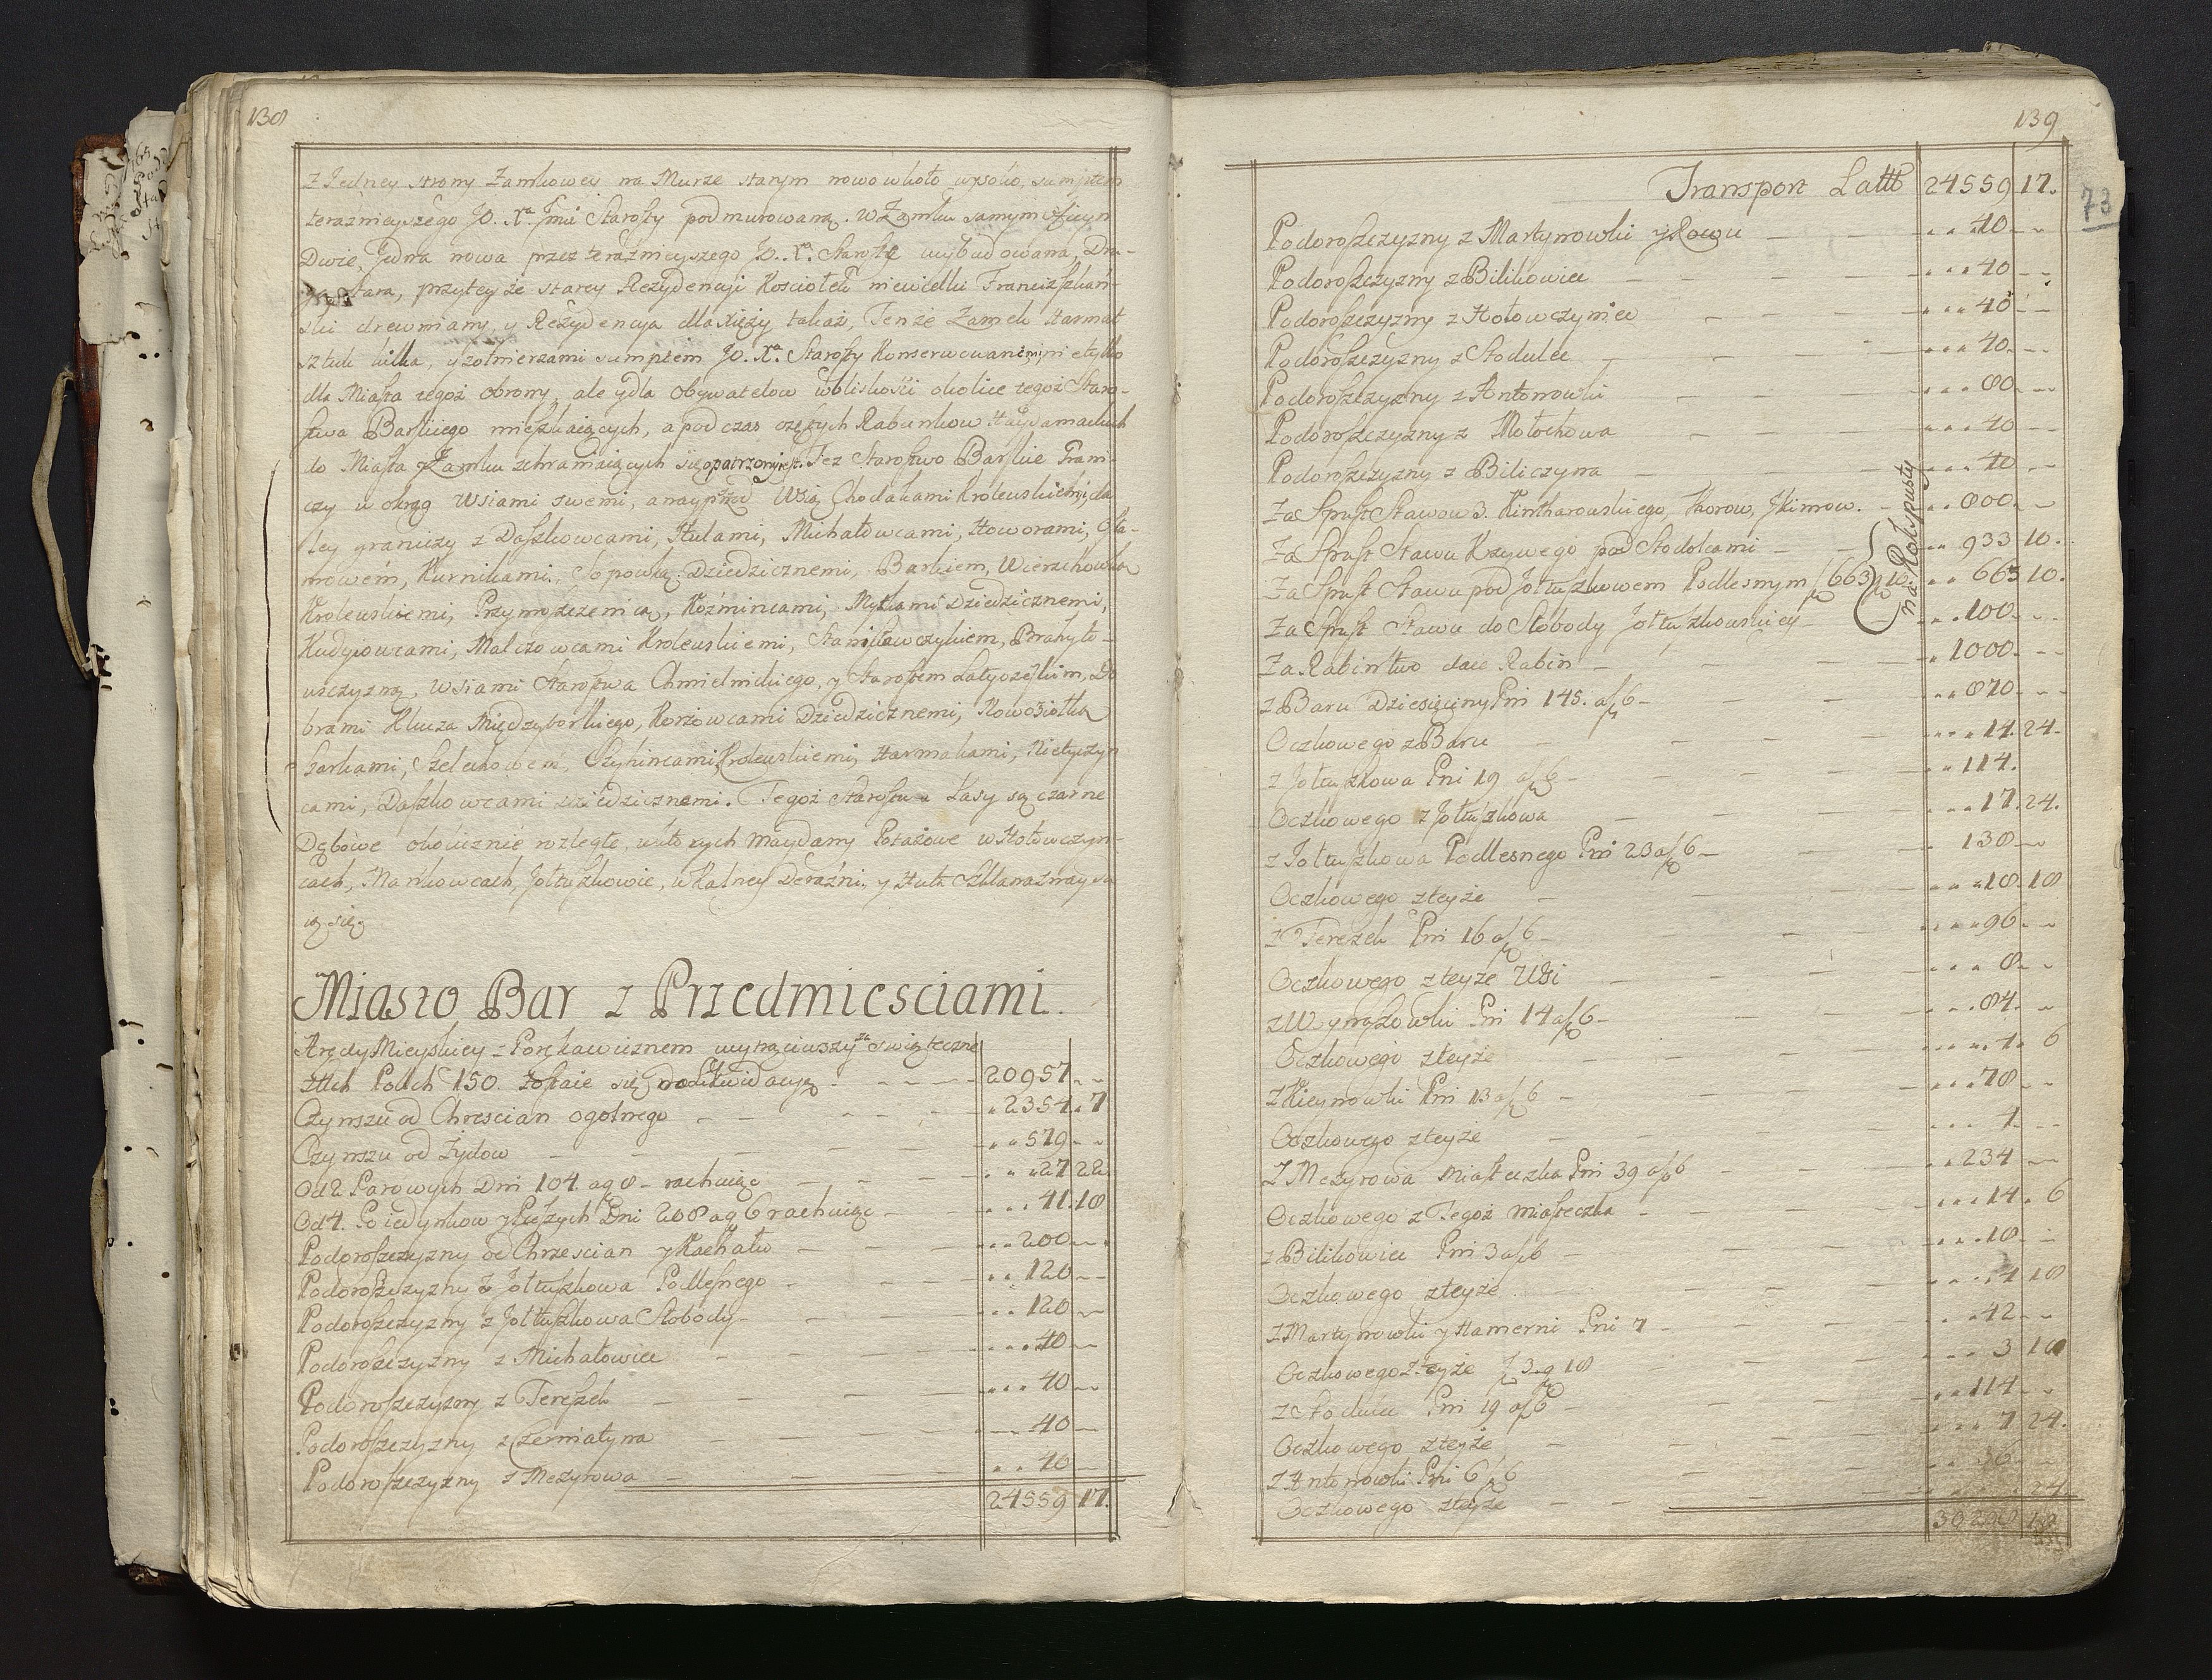 138
z Iedney strony Zamkowey na Murze starym nowo wkoło wysoko, sumptem
teraznieyszego JO. Xa Jmci Starosty podmurowaną. W Zamku samym oficyn
Dwie, Jedna nowa przez teraźnieyszego JO. Xa. Starostę wybudowana, Dru-
ga stara, przy teyże starey Rezydencyi Kosciołek niewielki Franciszkań-
ski drewniany, y Rezydencya dla Xięży takaż, Tenże Zamek Harmat
sztuk kilka, y zołnierzami sumptem JO. Xa. Starosty Konserwowanemi, nie tylko
dla Miasta tegoż obrony, ale y dla Obywatelow w bliskości okolice tegoż Staro-
stwa Barskiego mieszkaiących, a pod czas częstych Rabunkow Haydamackich
do Miasta y Zamku schraniaiących się opatrzony jest. Też Starostwo Barskie Grani-
czy w okrąg Wsiami swemi, a nayprzod Wsią Chodakami Krolewskiemi, da-
ley graniczy z Daszkowcami, Hulami, Michałowcami, Howorami, Osła-
mowem, Kurnikami, Popową Dziedzicznemi, Barkiem, Wierzchowką
Krolewskiemi, Przymoszczenicą, Koźmincami, Mytkami Dziedzicznemi,
Kudyiowcami, Malczowcami Krolewskiemi, Stanisławczykiem, Brahyło-
wszczyzną, Wsiami Starostwa Chmielnickiego, y Starostem Latyczeskim, Do
brami Klucza Międzyborskiego, Korżowcami Dziedzicznemi, Nowosiołką
Szarkami, Szelechowem, Czyhincami Krolewskiemi, Harmakami, Kietyczyn
cami, Daszkowcami dziedzicznemi. Tegoż Starostwa Lasy są czarne
Dębowe okolicznie rozległe, w ktorych Maydany Potażowe w Hołowczyn-
cach, Mańkowcach, Jołtuszkowie, w Kalney Deraźni, y Huta Szklana znaydu
ią się.
Miasto Bar z Przedmiesciami.
Arędy Mieyskiey z Porękawicznem wytrąciwszy za swięteczne
Złłch Polłch 150. Zostaie się do Likwidacyę - 20957 - -
Czynszu od Chrescian ogolnego - 2354 . 7
Czynszu od Żydow - 579 - -
Od 2 Parowych Dni 104. a g 8 - rachuiąc - 27 22.
Od 4. Poiedynkow y Pieszych Dni 208 a g 6 rachuiąc - 41. 18
Podoroszczyzny od Chrzescian y Kachału - 200 - -
Podoroszczyzny z Jołtuszkowa Podlesnego - 120 - -
Podoroszczyzny z Jołtuszkowa Słobody - 120 - -
Podoroszczyzny z Michałowiec - 40 - -
Podoroszczyzny z Tereszek - 40 - -
Podoroszczyzny z Czerniatyna - 40 - -
Podoroszczyzny z Mezyrowa - 40 -
24559 17.
139
73
Transport Lattł 24559 17.
Podoroszczyzny z Martynowki y Rowu - 40 - -
Podoroszczyzny z Bilikowiec - 40 - -
Podoroszczyzny z Hołowczyniec - 40 - -
Podoroszczyzny z Stodulec - 40. - -
Podoroszczyzny z Antonowki - 80 - -
Podoroszczyzny z Mołochowa - 40 - -
Podoroszczyzny z Biliczyna - 40 - -
Za Spust Stawow 3. Kintharowskiego, Horow, Jkimow. - 800. - -
Za Spust Stawu Krzywego pod Stodolcami - 933 10.
Za Spust Stawu pod Jołtuszkowem Podlesnym f 663 g 10. - 663 10.
Za Spust Stawu do Słobody Jołtuszkowskiey - 100. - -
na Rok spusty
Za Rabinstwo daie Rabin - 1000. - -
z Baru Dziesięciny Pni 145. a f 6 - 870 - -
Oczkowego z Baru - 14. 24.
z Jołtuszkowa Pni 19 a f 6 - 114.
Oczkowego z Jołtuszkowa - 17. 24.
z Jołtuszkowa Podlesnego Pni 23 a f 6 - 138 - -
Oczkowego z teyże - 18. 18
z Terezek Pni 16 a f 6 - 96 - -
Oczkowego z teyże Wsi - 8 - -
z Wynaszowki Pni 14 a f 6 - 84. -
Oczkowego z teyże - 1. 6
z Kieynowki Pni 13 a f 6 - 78 - -
Oczkowego z teyże - 1. - -
Z Mezyrowa Miasteczka Pni 39 a f 6 - 234 - -
Oczkowego z Tegoż Miasteczka - 14 . 6
z Bilikowiec Pni 3 a f 6 - 18 - -
Oczkowego z teyże - 4 18
Z Martynowki y Hamerni Pni 7 - 42 - -
Oczkowego z teyże f 3 g 18 - 3 18
z Stodulec Pni 19 a f 6 - 114 - -
Oczkowego z teyże - 7 24.
Z Antonowki Pni 6 a f 6 - 36 - -
Oczkowego z teyże - 24
30298 19